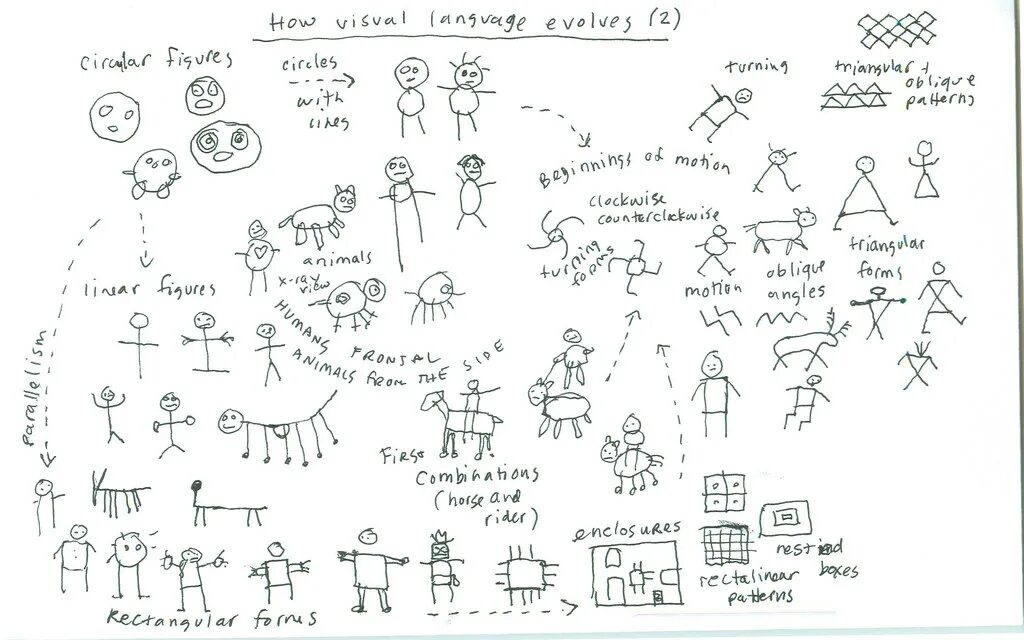 How visual language evolves (2)
circular figures
circles
with
lines
turning
triangular +
oblique
patterns
Beginnings of motion
clockwise
counterclockwise
turning
forms
animals
x-ray
view
linear figures
HUMANS FRONTAL
ANIMALS FROM THE SIDE
motion
oblique
angles
triangular
forms
Parallelism
First
Combinations
(horse and
rider)
enclosures
nesting
boxes
rectalinear
patterns
Rectangular forms